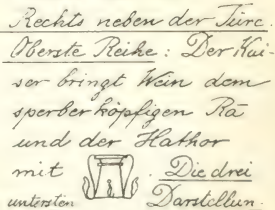 Rechts neben der Türe.
Oberste Reihe: Der Kai-
ser bringt Wein dem
sperberköpfigen Rā
und der Hathor
mit . Die drei
untersten Darstellun-